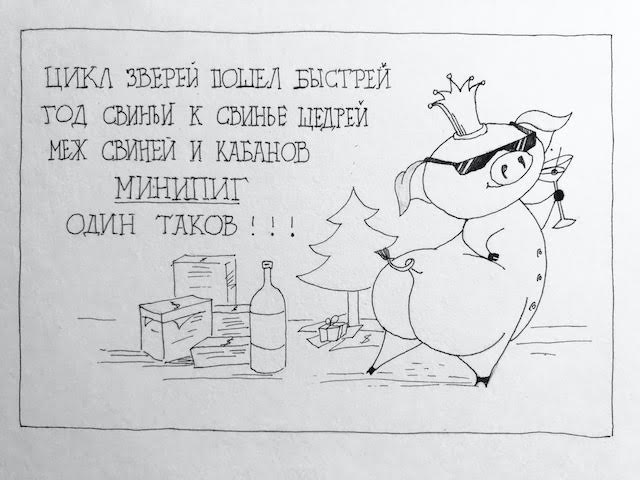 ЦИКЛ ЗВЕРЕЙ ПОШЕЛ БЫСТРЕЙ
ГОД СВИНЬИ К СВИНЬЕ ЩЕДРЕЙ
МЕЖ СВИНЕЙ И КАБАНОВ
МИНИПИГ
ОДИН ТАКОВ!!!